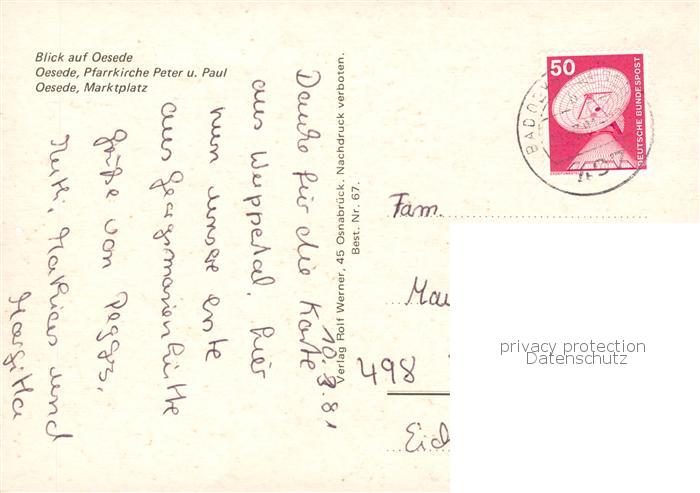 Blick auf Oesede
Oesede, Pfarrkirche Peter u. Paul
Oesede, Marktplatz
10.3.81
Danke für die Karte
aus Wuppertal, hier
nun unsere erste
aus Georgsmarienhütte
Grüße von Peggy,
Mathias und
Margitta
Verlag Rolf Werner, 45 Osnabrück. Nachdruck verboten.
Best. Nr. 67.
50
DEUTSCHE BUNDESPOST
Fam.
498
privacy protection
Datenschutz